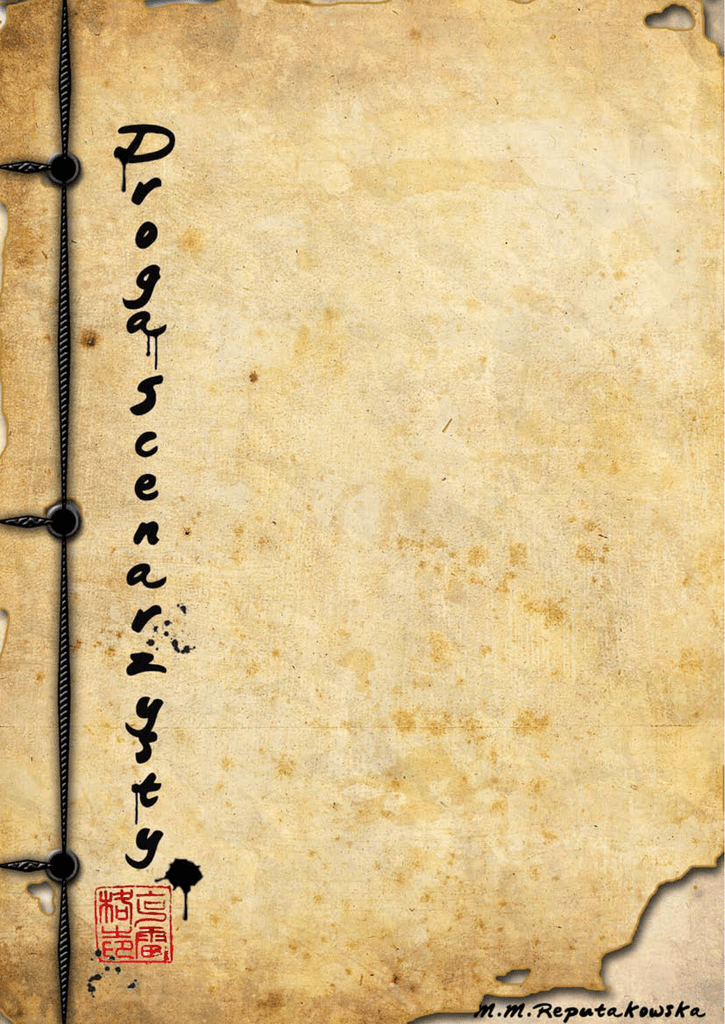 Droga scenarzysty
M.M.Reputakowska